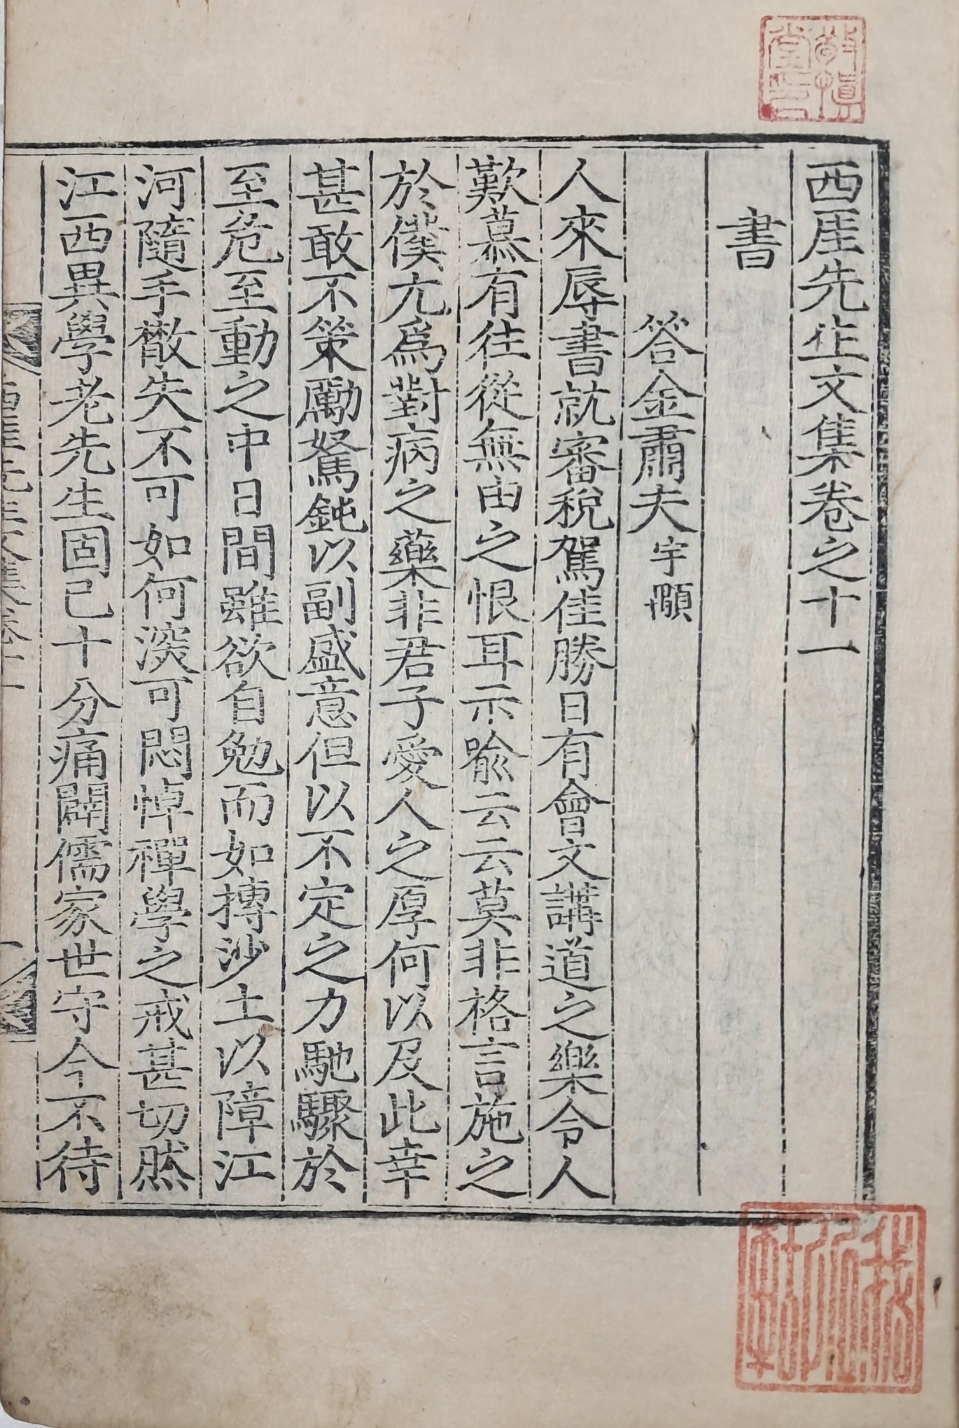 西厓先生文集卷之十一
書
答金肅夫宇顒
人來辱書就審稅駕佳勝日有會文講道之樂令人
歎慕有往從無由之恨耳示喩云云莫非格言施之
於僕尤爲對病之藥非君子愛人之厚何以及此幸
甚敢不策勵駑鈍以副盛意但以不定之力馳驟於
至危至動之中日間雖欲自勉而如摶沙土以障江
河隨手散失不可如何深可悶悼禪學之戒甚切然
江西異學老先生固已十分痛闢儒家世守今不待
西厓先生文集卷十一
一
敬愼堂